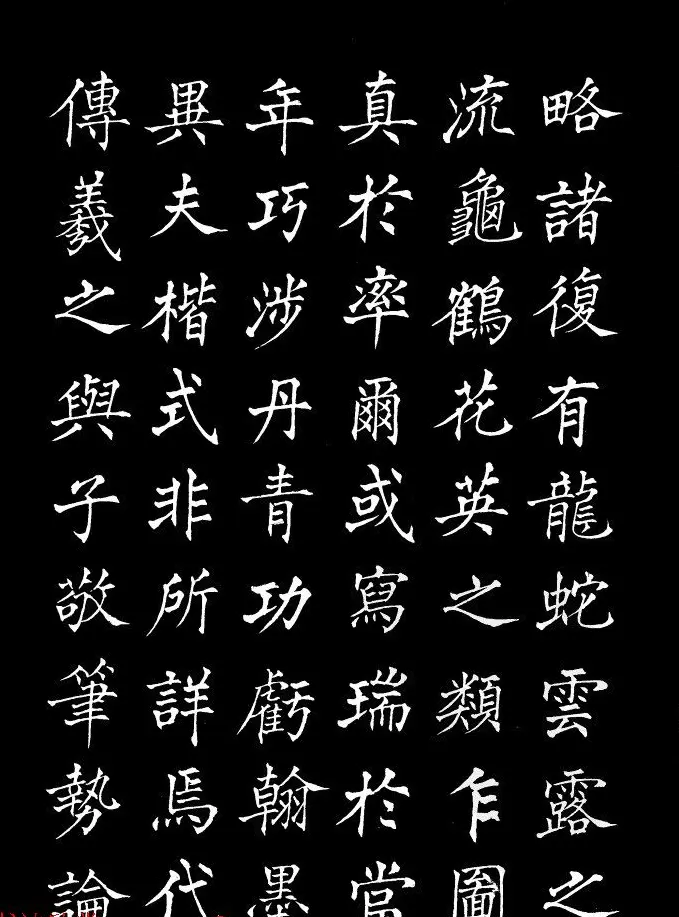 略諸復有龍蛇雲露之
流龜鶴花英之類乍圖
真於率爾或寫瑞於當
年巧涉丹青功虧翰墨
異夫楷式非所詳焉代
傳羲之與子敬筆勢論